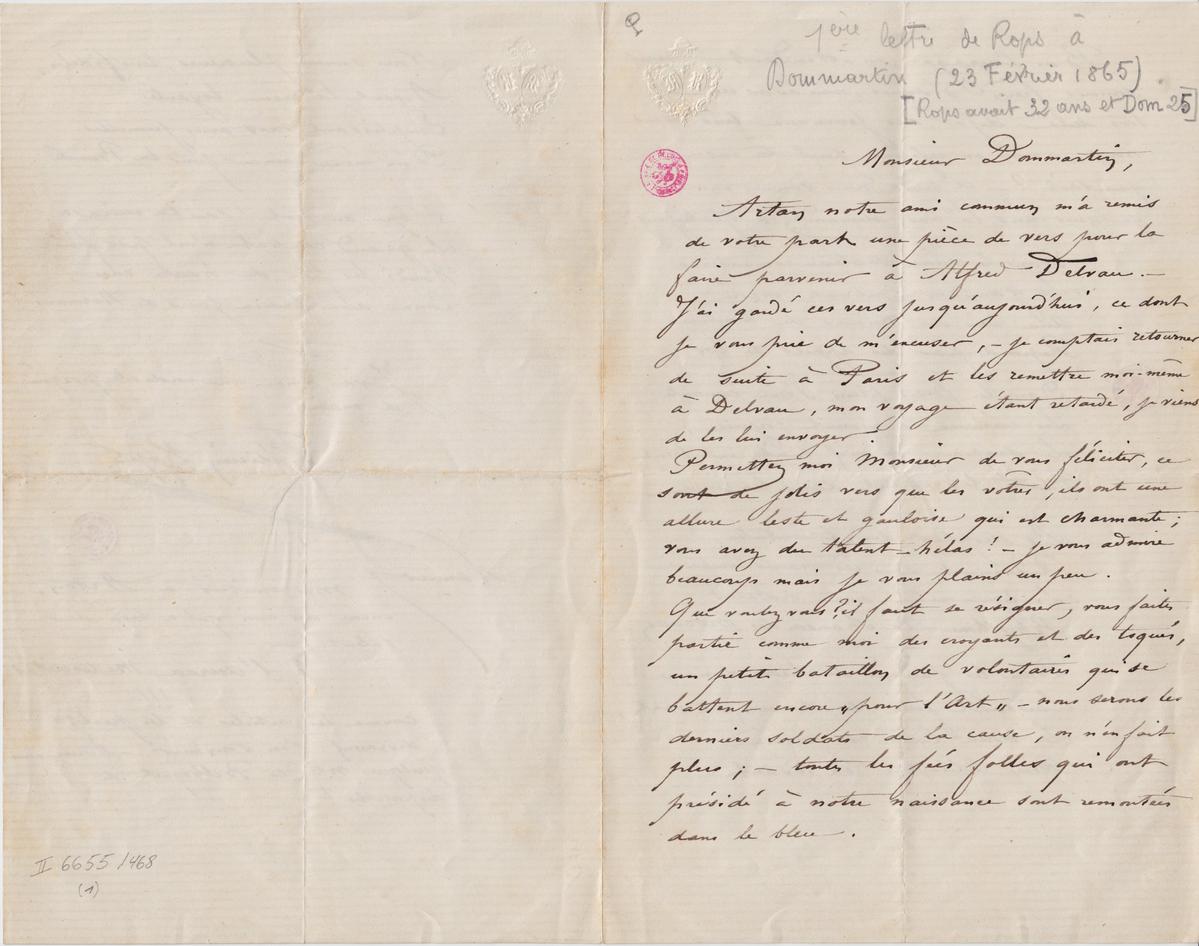 1ère lettre de Rops à
Dommartin (23 Février 1865).
[Rops avait 32 ans et Dom 25]
Monsieur Dommartin,
Artan notre ami commun m'a remis
de votre part une pièce de vers pour la
faire parvenir à Alfred Delvau. —
J'ai gardé ces vers jusqu'aujourd'hui, ce dont
je vous prie de m'excuser, — je comptais retourner
de suite à Paris et les remettre moi-même
à Delvau, mon voyage étant retardé, je viens
de les lui envoyer
Permettez moi Monsieur de vous féliciter, ce
sont de jolis vers que les vôtres, ils ont une
allure leste et gauloise qui est charmante;
vous avez du talent — hélas! — je vous admire
beaucoup mais je vous plains un peu.
Que voulez vous? il faut se résigner, vous faites
partie comme moi des croyants et des toqués,
un petit bataillon de volontaires qui se
battent encore „pour l'Art„ — nous serons les
derniers soldats de la cause, on n'en fait
plus; — toutes les fées folles qui ont
présidé à notre naissance sont remontées
dans le bleu.
II 6655/468
(1)